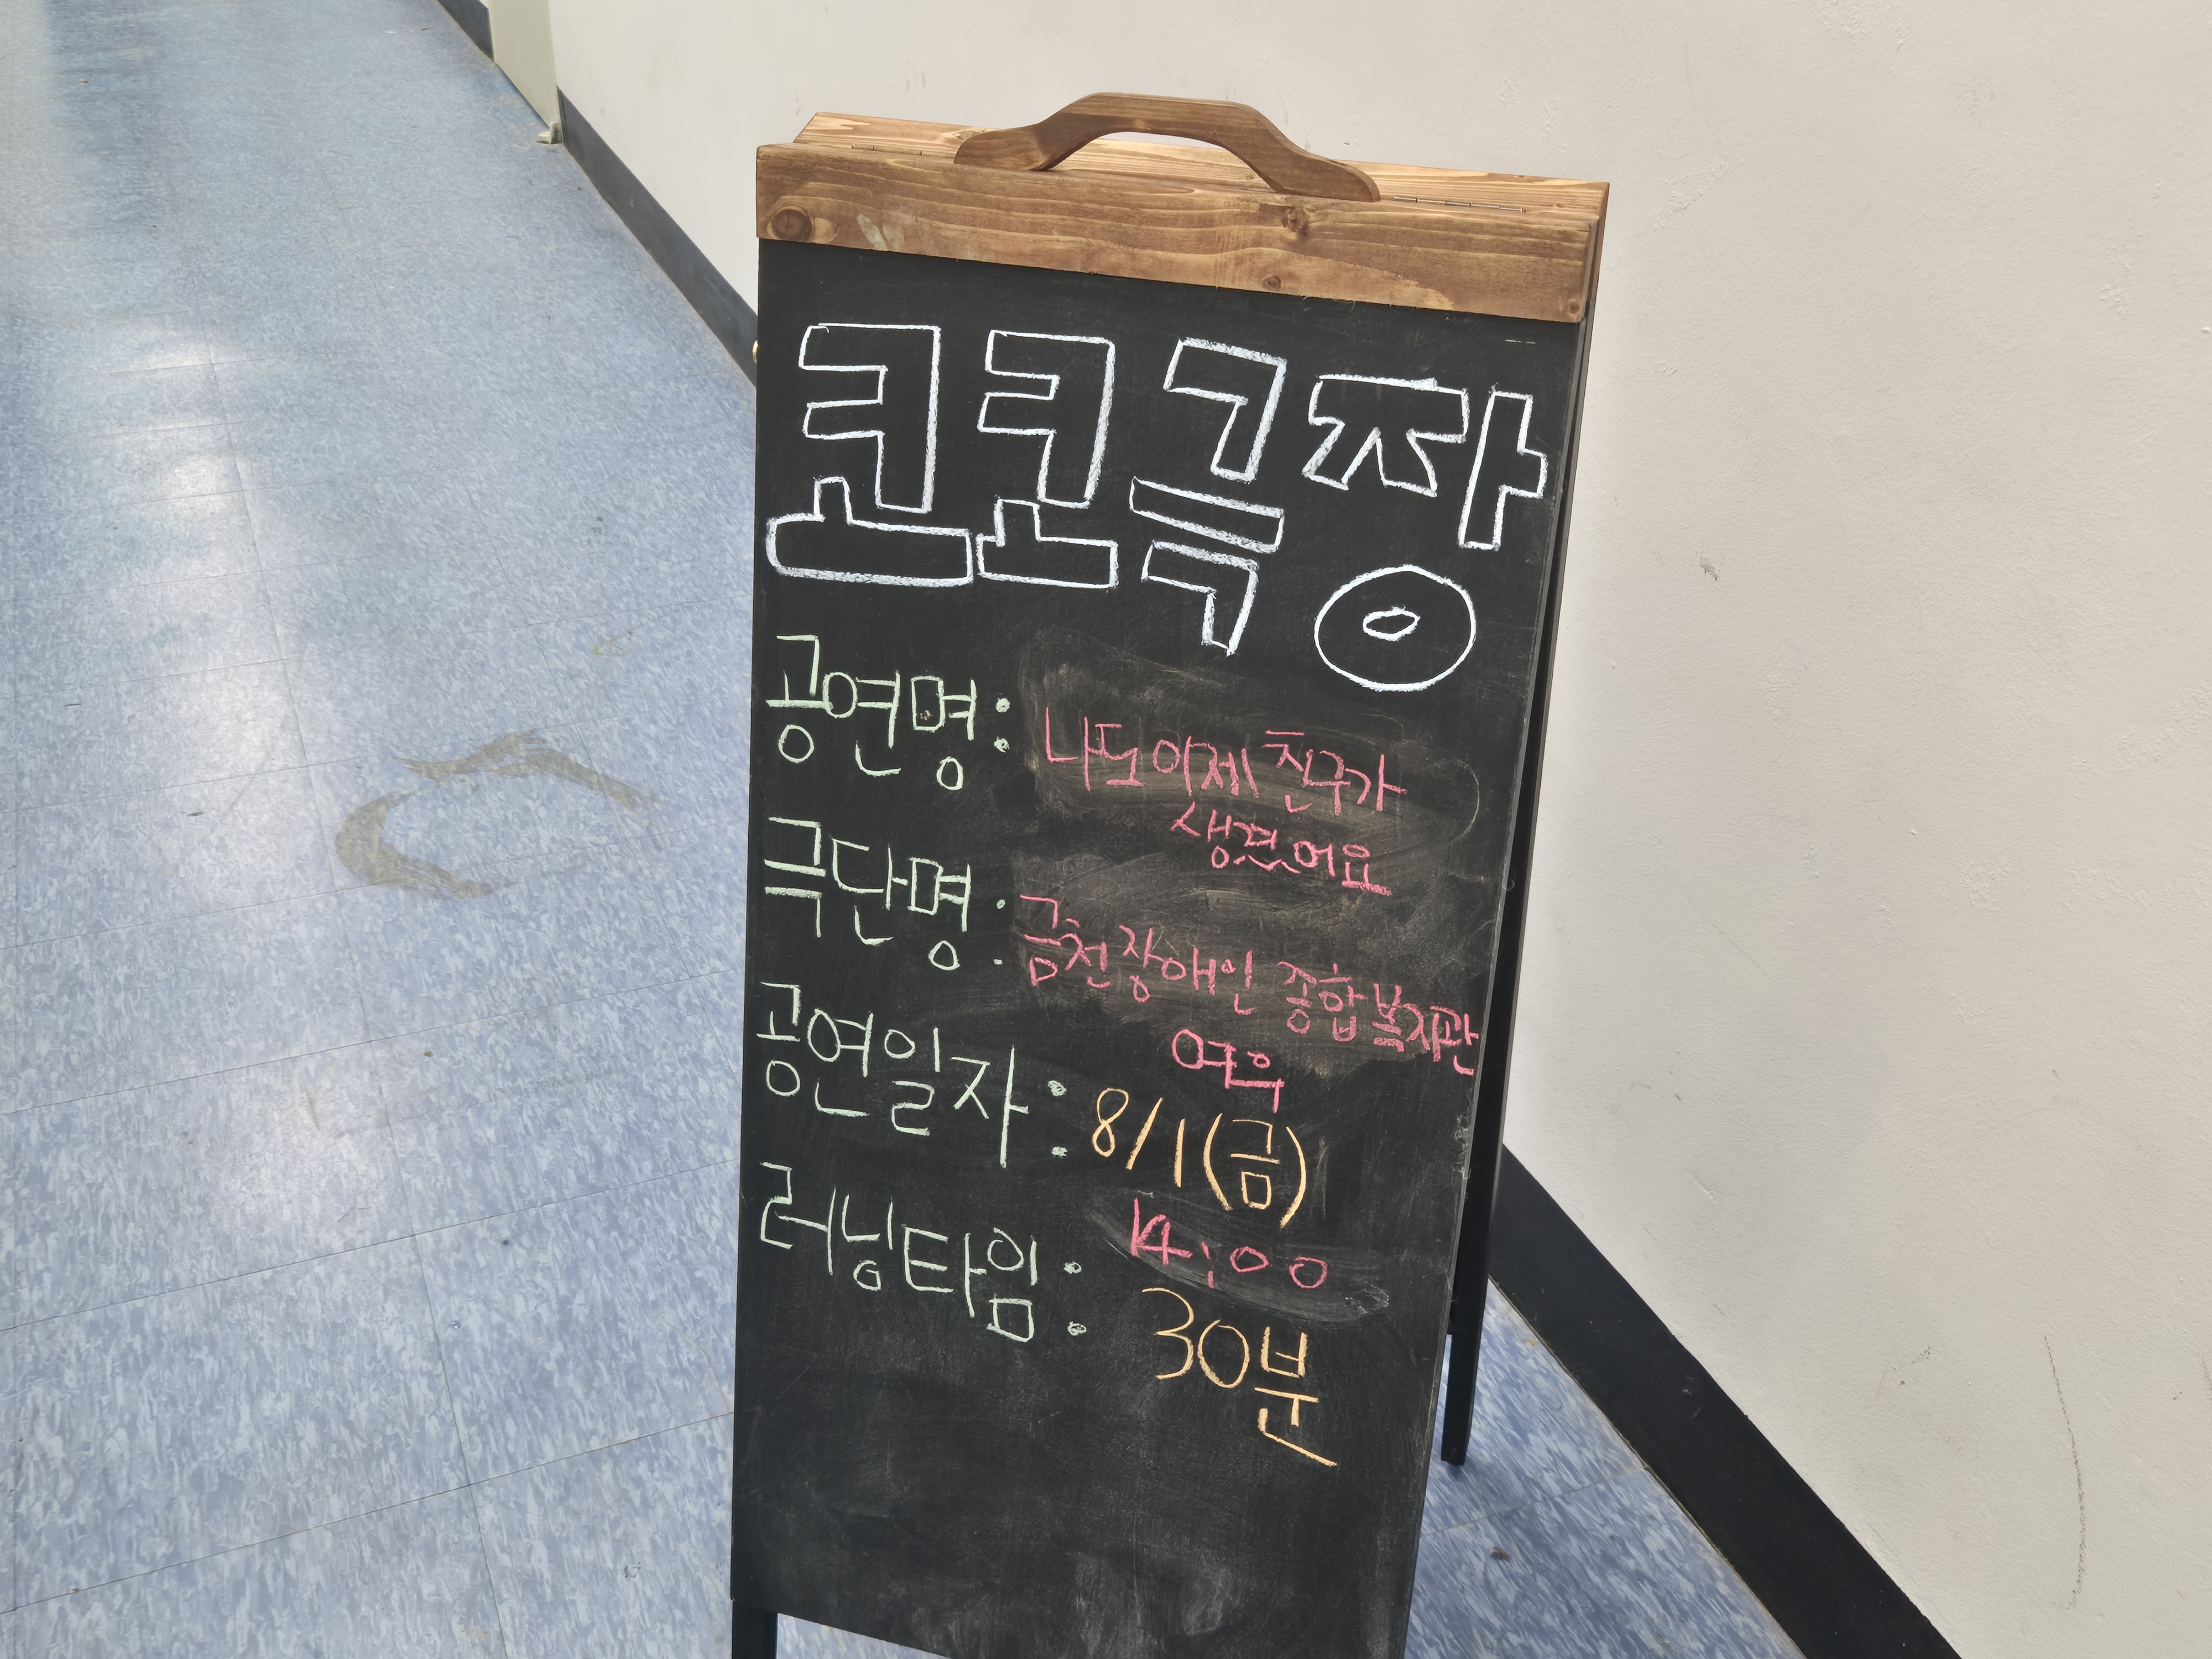 코코극장
공연명: 나도 이제 친구가
생겼어요
극단명: 금천장애인 종합복지관
여우
공연일자: 8/1(금)
14:00
러닝타임: 30분